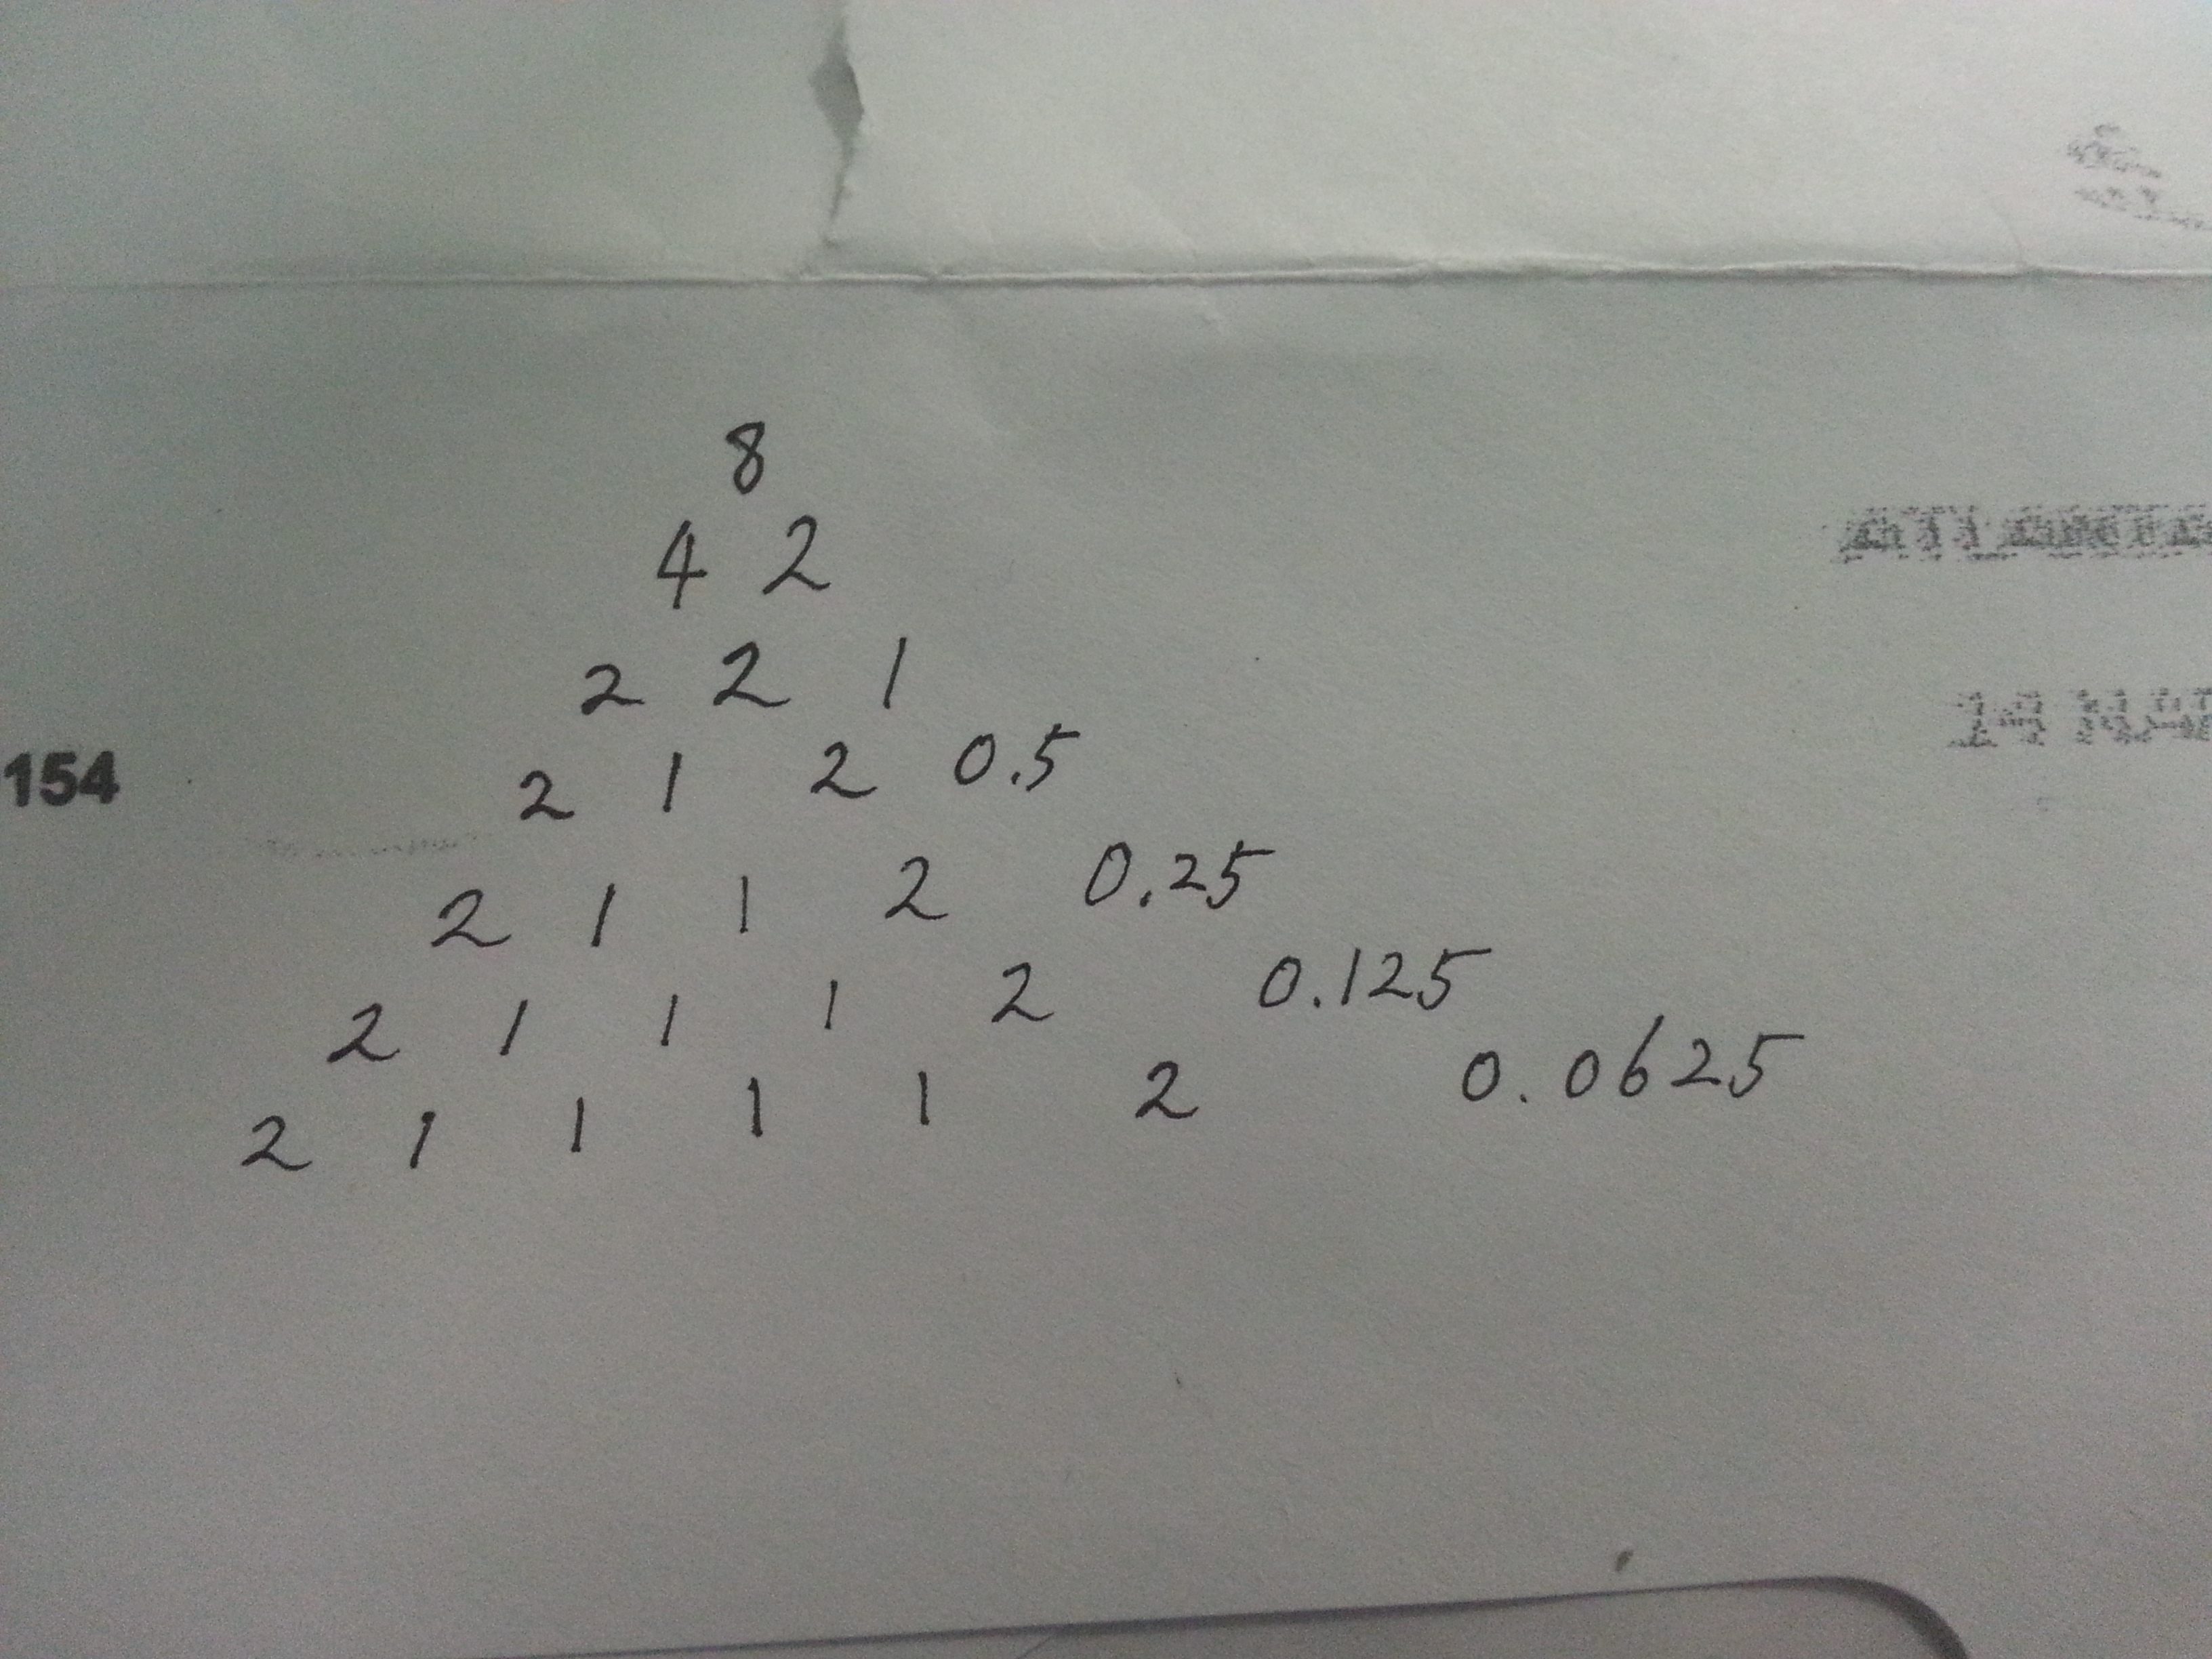 8
4 2
2 2 1
2 1 2 0.5
154
2 1 1 2 0.25
2 1 1 1 2 0.125
2 1 1 1 1 2 0.0625